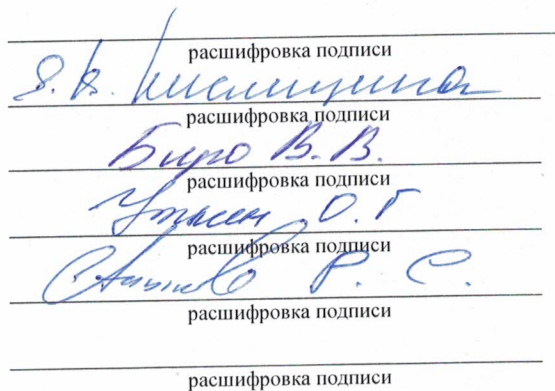 расшифровка подписи
Кислицина
расшифровка подписи
Биро В. В.
расшифровка подписи
О. Г
расшифровка подписи
Р. С.
расшифровка подписи
расшифровка подписи